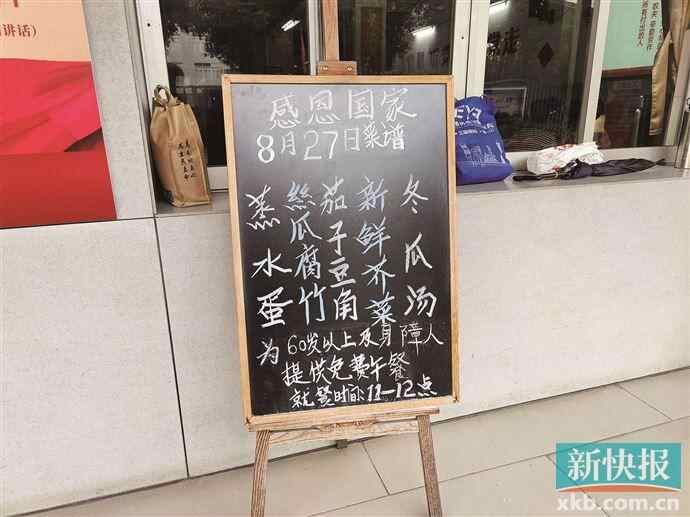 感恩国家
8月27日菜谱
蒸水蛋
丝瓜腐竹
茄子豆角
新鲜芥菜
冬瓜汤
为60岁以上及身障人
提供免费午餐
就餐时间:11—12点
讲话）
新快报
xkb.com.cn